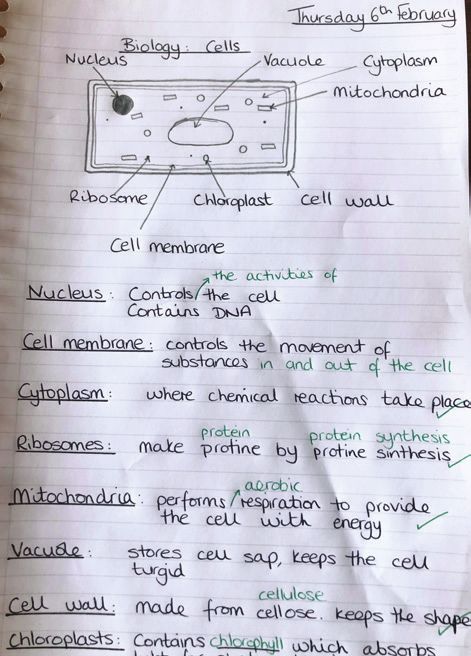 Thursday 6th February
Biology: Cells
Nucleus
Vacuole
Cytoplasm
mitochondria
Ribosome
Chloroplast
Cell wall
Cell membrane
the activities of
Nucleus: Controls the cell
Contains DNA
Cell membrane: controls the movement of
substances in and out of the cell
Cytoplasm: where chemical reactions take place
protein protein synthesis
Ribosomes: make protine by protine sinthesis
aerobic
Mitochondria: performs respiration to provide
the cell with energy
Vacuole: stores cell sap, keeps the cell
turgid
cellulose
Cell wall: made from cellose. keeps the shape
Chloroplasts: Contains chlorophyll which absorbs